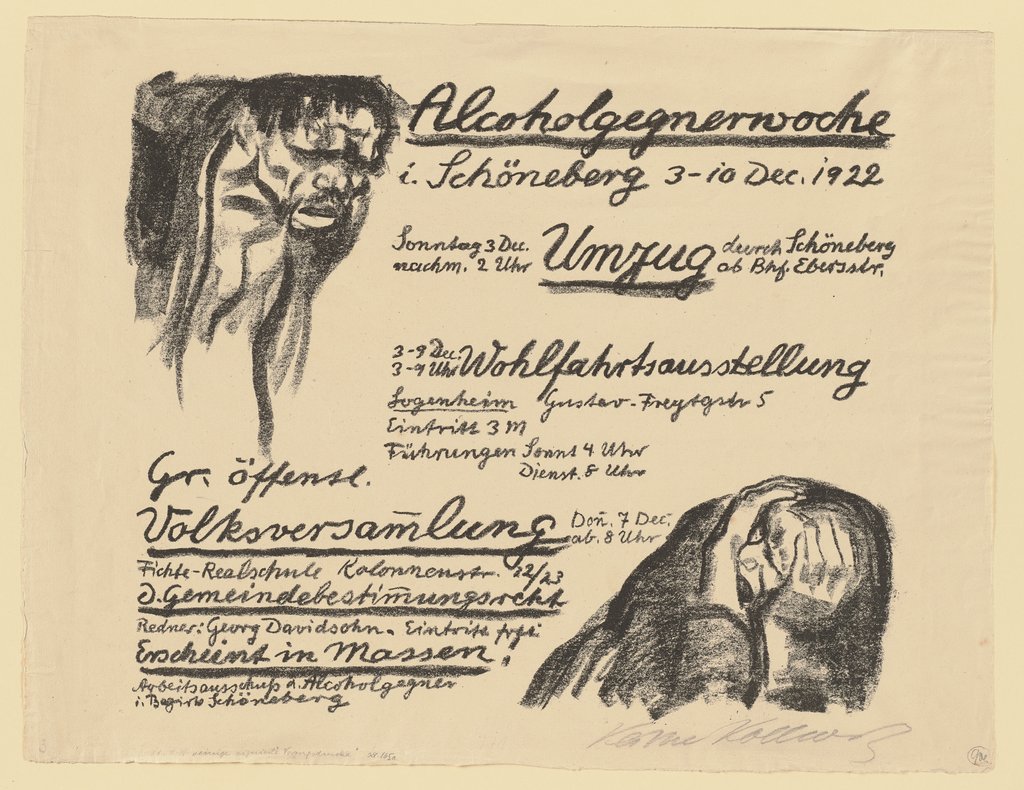 Alcoholgegnerwoche
i. Schöneberg 3-10 Dec. 1922
Sonntag 3 Dec.
nachm. 2 Uhr
Umzug
durch Schöneberg
ab Bhf. Ebersstr.
3-9 Dec.
3-9 Uhr
Wohlfahrtsausstellung
Logenheim Gustav-Freytagstr 5
Eintritt 3 M
Führungen Sonnt 4 Uhr
Dienst. 8 Uhr
Gr. öffentl.
Volksversam̄lung
Don̄. 7 Dec.
ab. 8 Uhr
Fichte-Realschule Kolonnenstr. 22/23
D. Gemeindebestim̄ungsrcht
Redner: Georg Davidsohn. Eintritt frei
Erscheint in Massen!
Arbeitsausschuß d. Alcoholgegner
i. Bezirk Schöneberg
Käthe Kollwitz